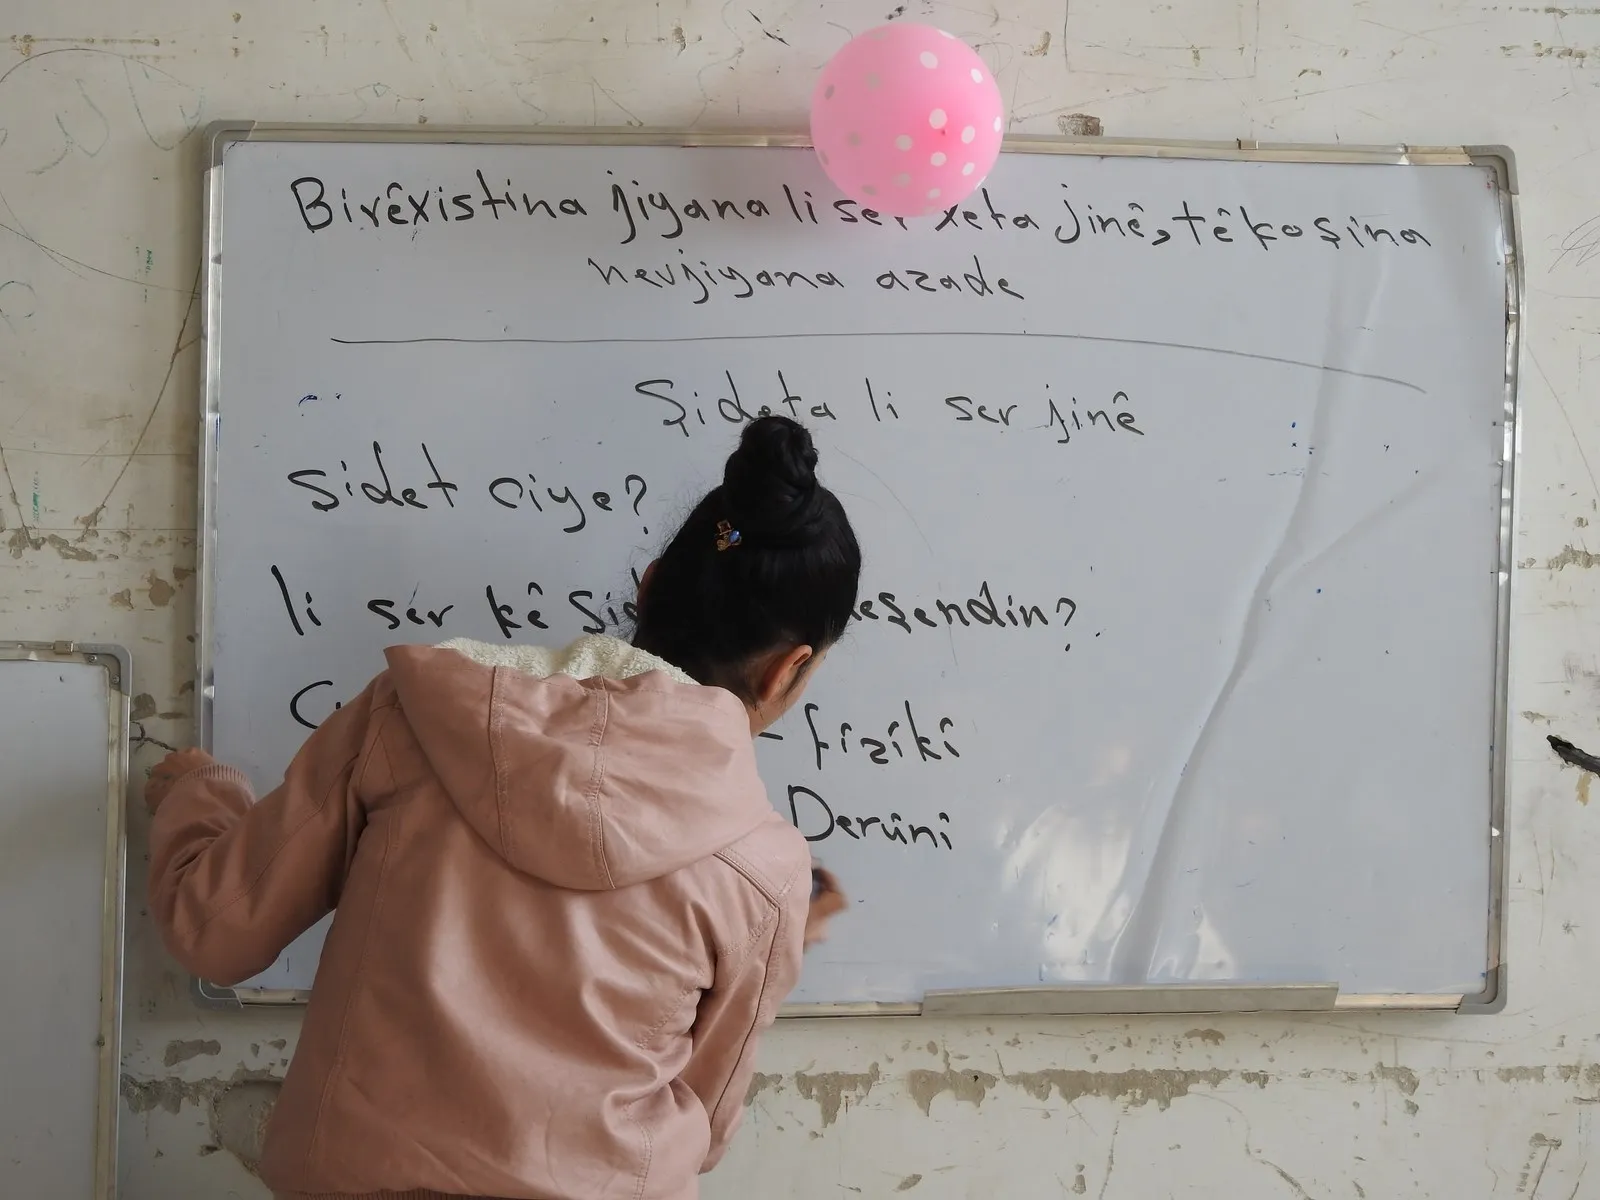 Birêxistina jiyana li ser xeta jinê, têkoşina
hevjiyana azade
Şideta li ser jinê
Şidet çiye?
li ser kê
- fîzîkî
Derûnî